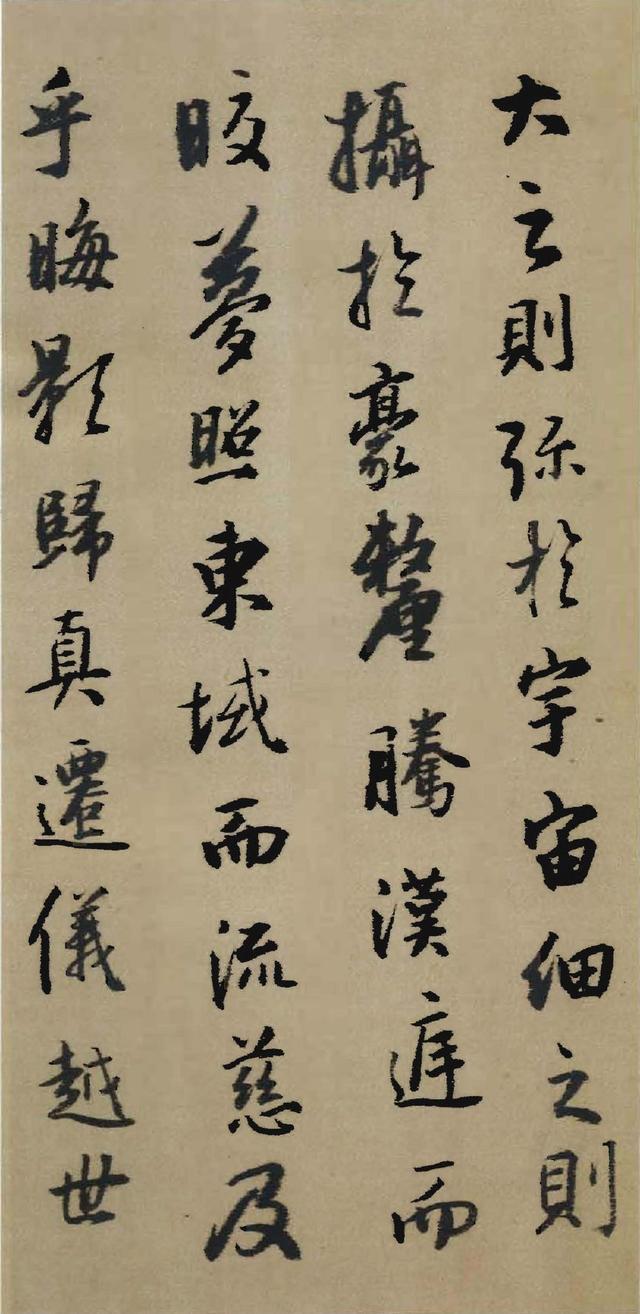 大之則弥於宇宙細之則
攝於豪釐騰漢遲而
晈夢照東域而流慈及
乎晦影歸真遷儀越世